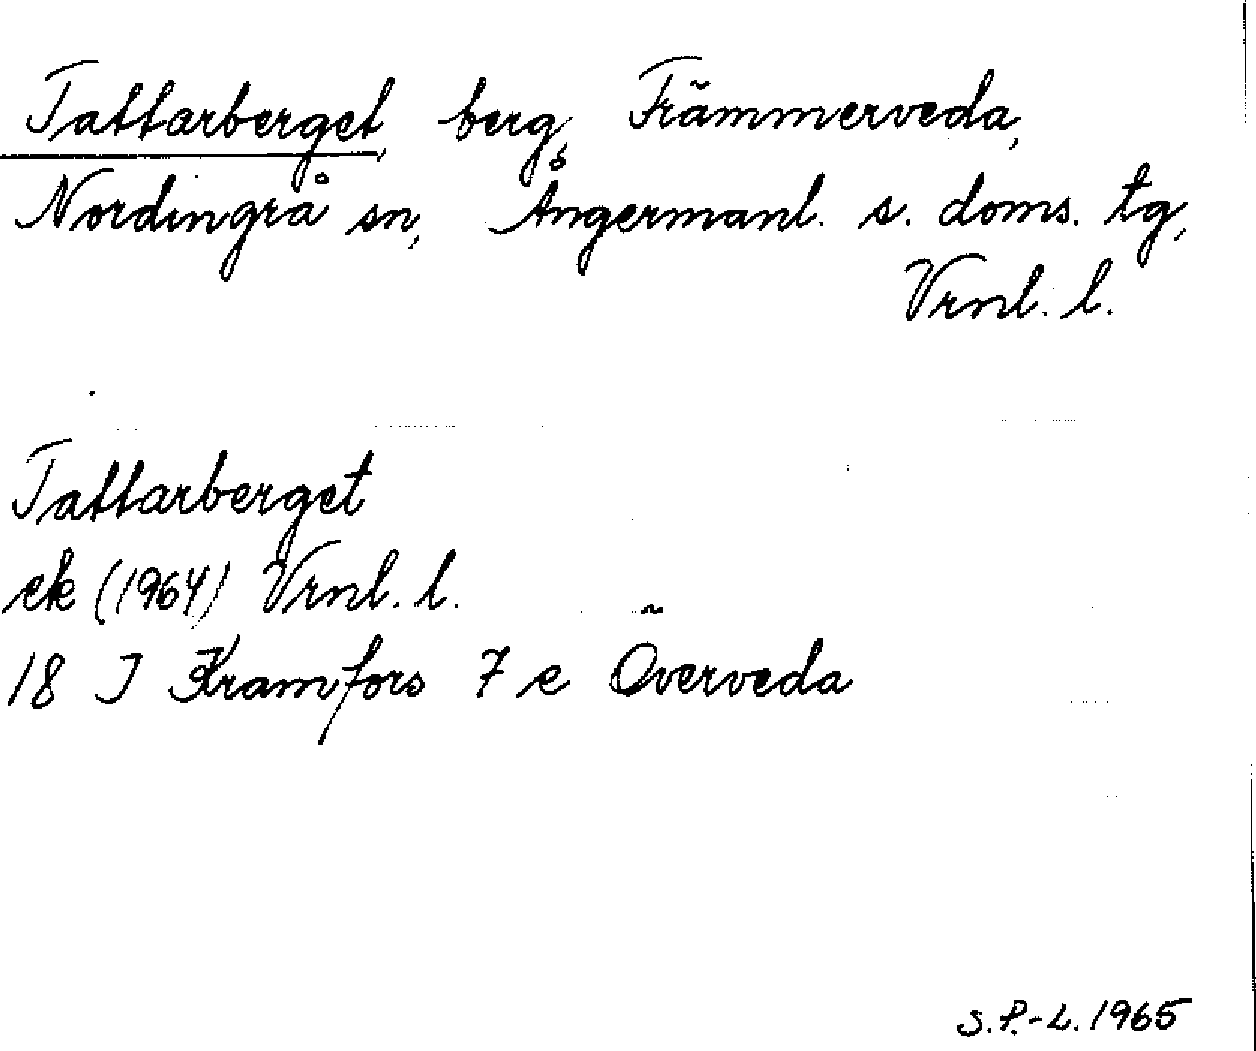 Tattarberget, berg, Främmerveda,
Nordingrå sn, Ångermanl. s. doms. tg,
Vrnl. l.
Tattarberget
ek (1964) Vrnl. l.
18 I Kramfors 7 e Överveda
S.P.-L. 1965